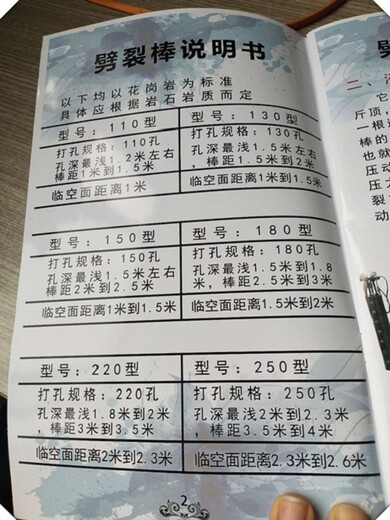 劈裂棒说明书
以下均以花岗岩为标准
具体应根据岩石岩质而定
型号：110型
打孔规格：110孔
孔深最浅1.2米左右
棒距1米到1.5米
临空面距离1米
型号：130型
打孔规格：130孔
孔深最浅1.5米左右
，棒距1.5米到2米
临空面距离1米到1.5米
型号：150型
打孔规格：150孔
孔深最浅1.5米左右
棒距2米到2.5米
临空面距离1米到1.5米
型号：180型
打孔规格：180孔
孔深最浅1.5米到1.8
米，棒距2.5米到3米
临空面距离1.5米到2米
型号：220型
打孔规格：220孔
孔深最浅1.8米到2米
，棒距3米到3.5米
临空面距离2米到2.3米
型号：250型
打孔规格：250孔
孔深最浅2米到2.3米
，棒距3.5米到4米
临空面距离2.3米到2.6米
2
二、
它
斤顶，
一根
棒的
也就
压动
压力
裂
动